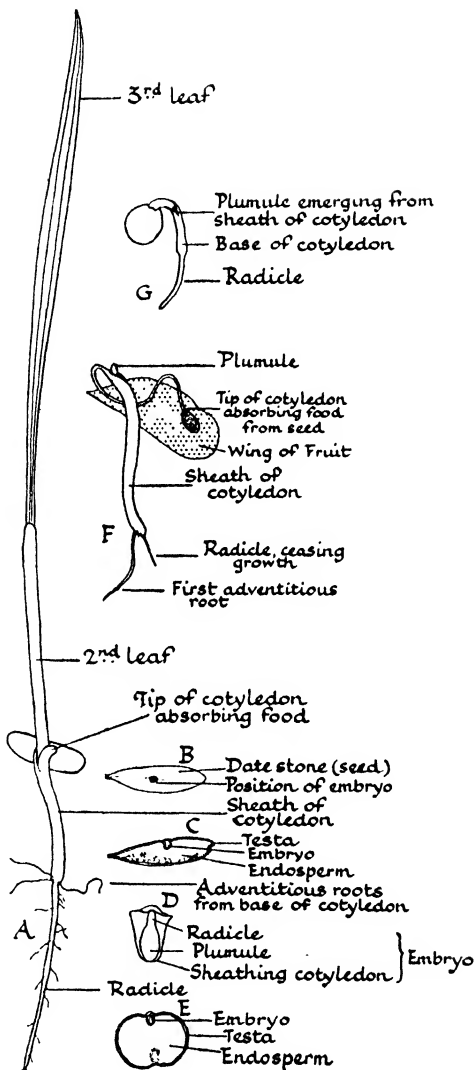 3rd leaf
Plumule emerging from
sheath of cotyledon
Base of cotyledon
Radicle
G
Plumule
Tip of cotyledon
absorbing food
from seed
Wing of Fruit
Sheath of
cotyledon
F
Radicle, ceasing
growth
First adventitious
root
2nd leaf
Tip of cotyledon
absorbing food
B
Date stone (seed)
Position of embryo
Sheath of
cotyledon
C
Testa
Embryo
Endosperm
Adventitious roots
from base of cotyledon
A
D
Radicle
Plumule
Sheathing cotyledon
Embryo
Radicle
E
Embryo
Testa
Endosperm